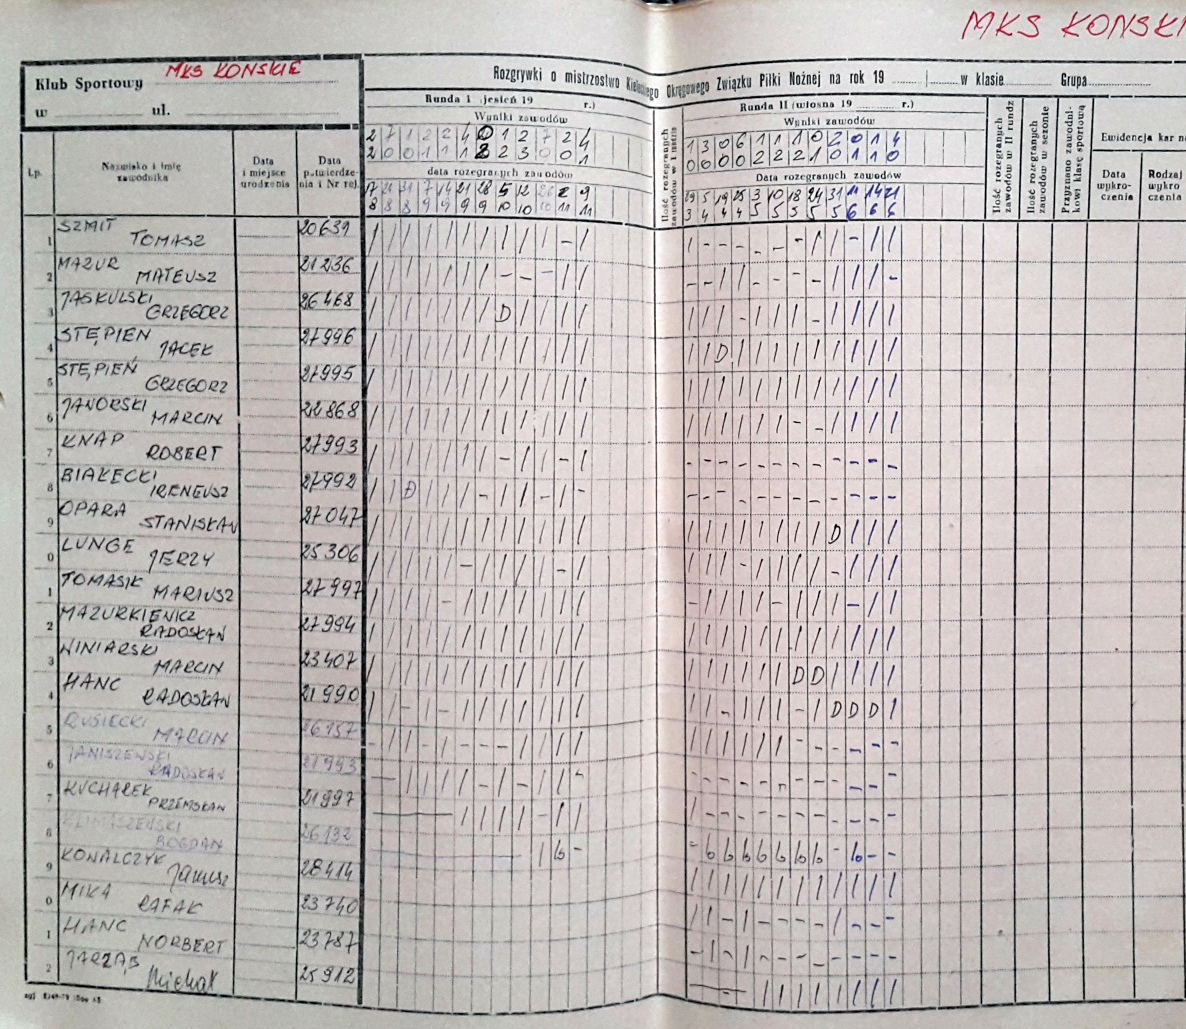 MKS KONSKI
Klub Sportowy MKS KONSKIE
w ul.
Rozgrywki o mistrzostwo Kieleckiego Okręgowego Związku Piłki Nożnej na rok 19 w klasie Grupa
Runda I (jesień 19 r.)
Runda II (wiosna 19 r.)
Wyniki zawodów
Wyniki zawodów
2 7 1 2 2 4 0 1 2 7 2 4
2 0 0 1 1 1 2 2 3 0 0 1
1 3 0 6 1 1 1 0 2 0 1 4
0 0 0 0 2 2 2 1 0 1 1 0
data rozegranych zawodów
Data rozegranych zawodów
17 24 31 7 14 21 28 5 12 26 2 9
8 8 8 9 9 9 9 10 10 10 11 11
29 5 19 25 3 10 18 24 31 11 14 21
3 4 4 4 5 5 5 5 5 6 6 6
Lp.
Nazwisko i imię zawodnika
Data i miejsce urodzenia
Data potwierdzenia i Nr rej.
Ilość rozegranych zawodów w I rundzie
Ilość rozegranych zawodów w II rundz
Ilość rozegranych zawodów w sezonie
Przyznano zawodnikowi klasę sportową
Ewidencja kar na
Data wykroczenia
Rodzaj wykro czenia
1 SZMIT TOMASZ 20639
2 MAZUR MATEUSZ 21236
3 JASKULSKI GRZEGORZ 26468
4 STĘPIEŃ JACEK 27996
5 STĘPIEŃ GRZEGORZ 27995
6 JAWORSKI MARCIN 22868
7 KNAP ROBERT 27993
8 BIAŁECKI IRENEUSZ 27992
9 OPARA STANISŁAW 27047
0 LUNGE JERZY 25306
1 TOMASIK MARIUSZ 27997
2 MAZURKIEWICZ RADOSŁAW 27994
3 WINIARSKI MARCIN 23407
4 HANC RADOSŁAW 21990
5 RUSIECKI MARCIN 26157
6 JANISZEWSKI RADOSŁAW 21993
7 KUCHAREK PRZEMSŁAW 21997
8 BOGDAN 26132
9 KOWALCZYK Janusz 28414
0 MIKA RAFAŁ 23740
1 HANC NORBERT 23787
2 JARZĄB Michał 25912